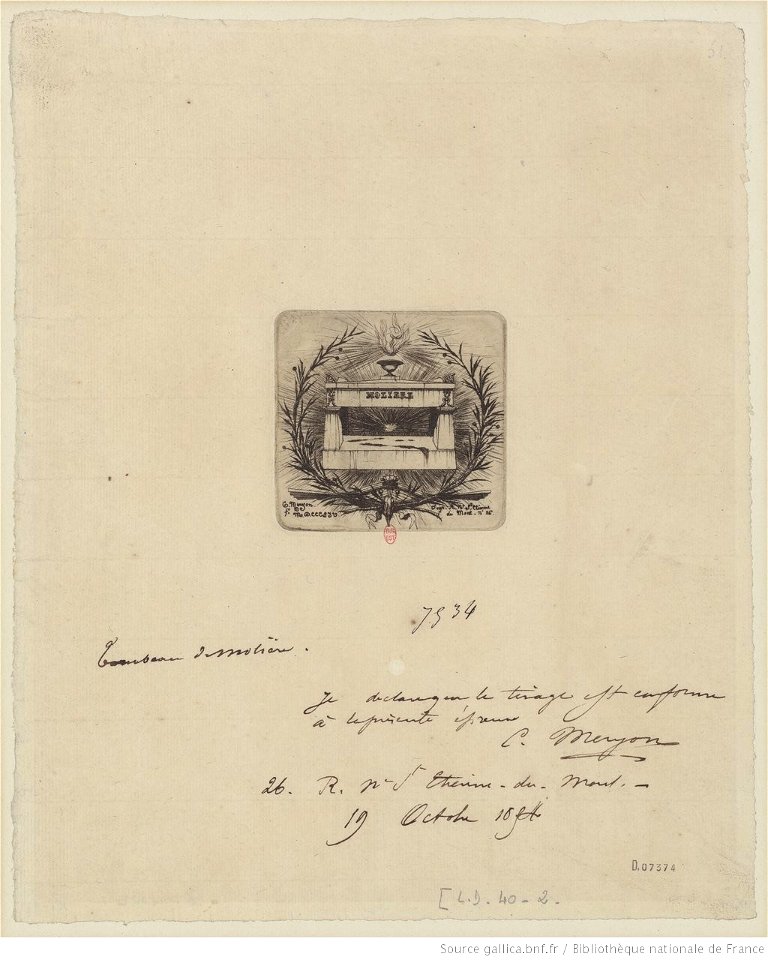 51
MOLIERE
C. Meryon
7934
Tombeau de Molière.
Je declare que le tirage est conforme
à la présente épreuve
C. Meryon
26. R. Nve St Etienne-du-Mont.-
19 Octobre 1854
D.07374
[L.D. 40-2.
Source gallica.bnf.fr / Bibliothèque nationale de France